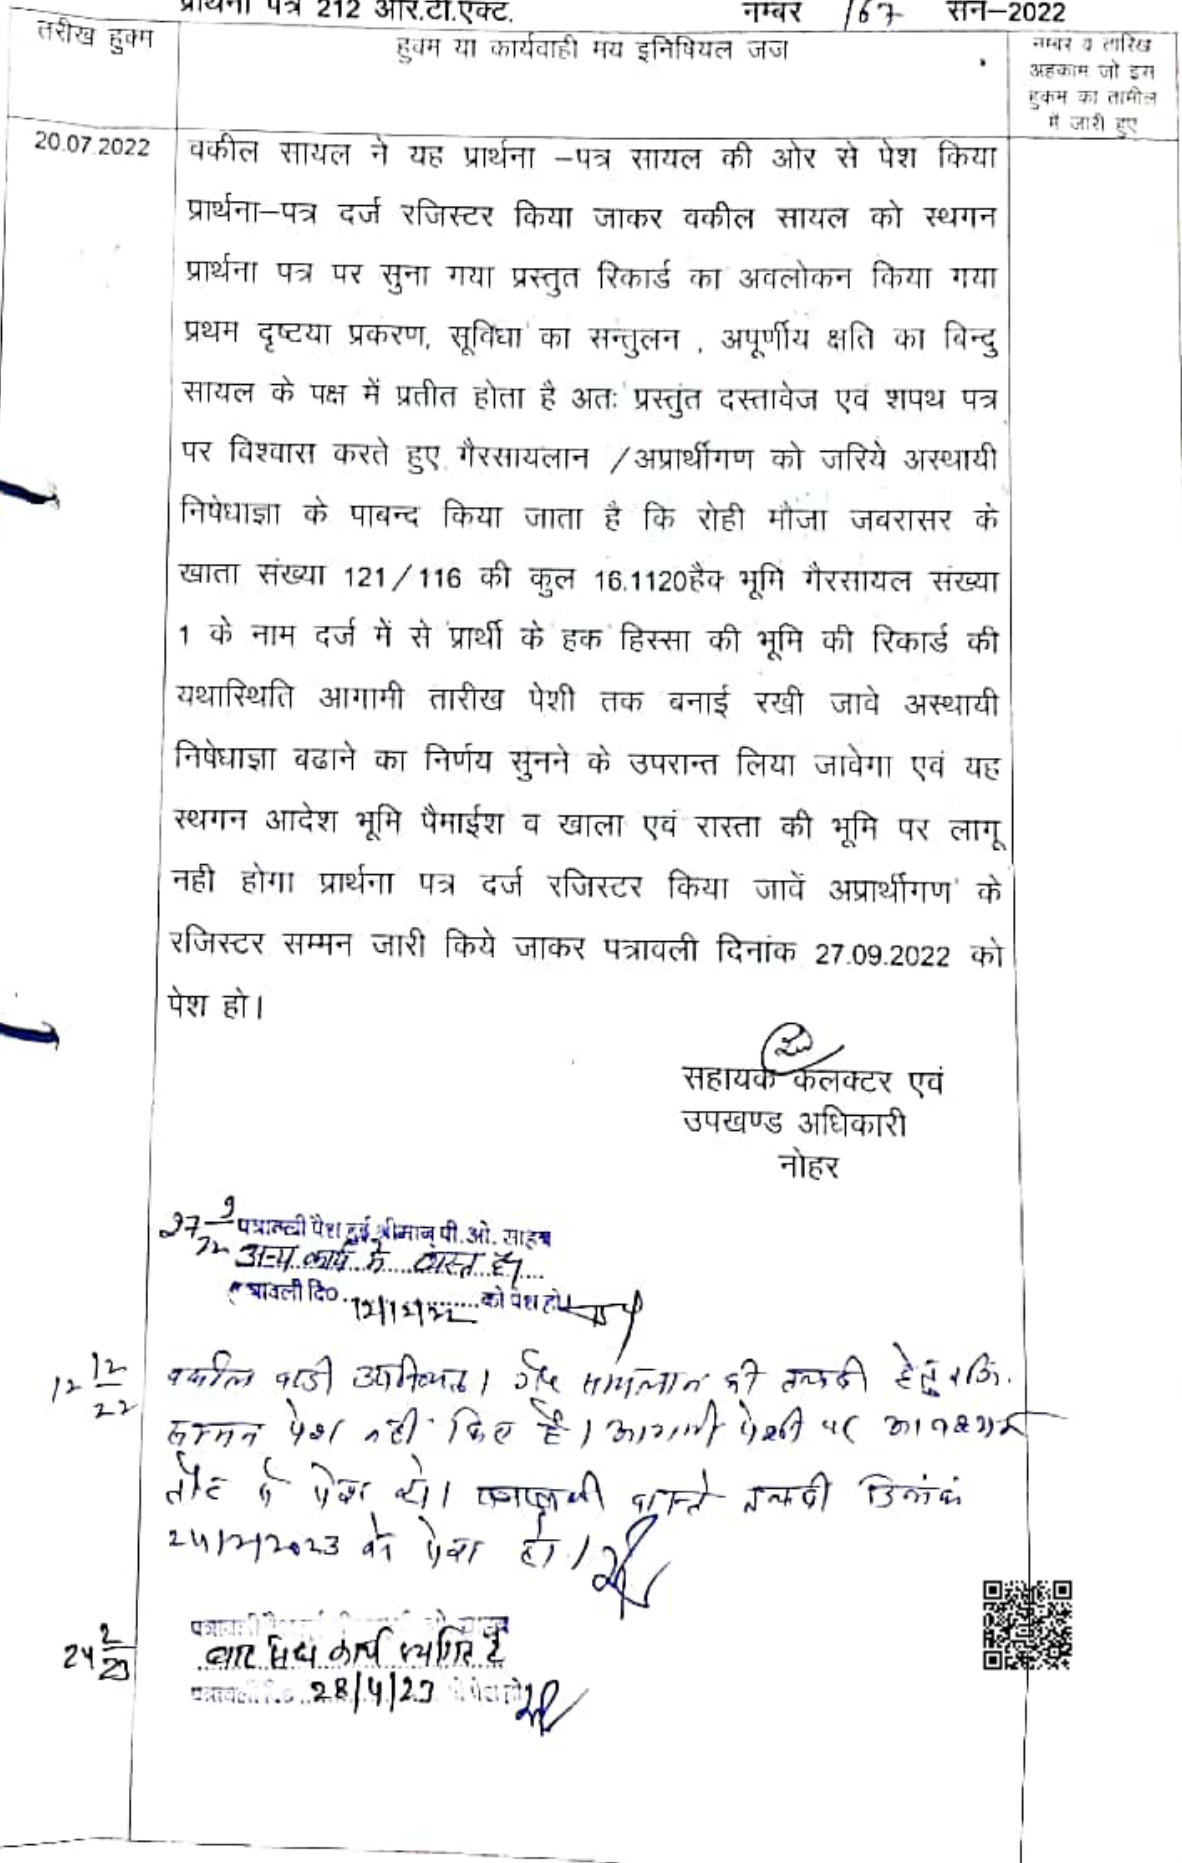 प्रार्थना पत्र 212 आर.टी.एक्ट. नम्बर 167 सन–2022
तरीख हुक्म
हुक्म या कार्यवाही मय इनिषियल जज
नम्बर व तारिख
अहकाम जो इस
हुकम का तामील
में जारी हुए
20.07.2022
वकील सायल ने यह प्रार्थना –पत्र सायल की ओर से पेश किया
प्रार्थना–पत्र दर्ज रजिस्टर किया जाकर वकील सायल को स्थगन
प्रार्थना पत्र पर सुना गया प्रस्तुत रिकार्ड का अवलोकन किया गया
प्रथम दृष्टया प्रकरण, सूविधा का सन्तुलन , अपूर्णीय क्षति का बिन्दु
सायल के पक्ष में प्रतीत होता है अतः प्रस्तुंत दस्तावेज एवं शपथ पत्र
पर विश्वास करते हुए गैरसायलान /अप्रार्थीगण को जरिये अस्थायी
निषेधाज्ञा के पाबन्द किया जाता है कि रोही मौजा जबरासर के
खाता संख्या 121/116 की कुल 16.1120हैक भूमि गैरसायल संख्या
1 के नाम दर्ज में से प्रार्थी के हक हिस्सा की भूमि की रिकार्ड की
यथास्थिति आगामी तारीख पेशी तक बनाई रखी जावे अस्थायी
निषेधाज्ञा बढाने का निर्णय सुनने के उपरान्त लिया जावेगा एवं यह
स्थगन आदेश भूमि पैमाईश व खाला एवं रास्ता की भूमि पर लागू
नही होगा प्रार्थना पत्र दर्ज रजिस्टर किया जावें अप्रार्थीगण के
रजिस्टर सम्मन जारी किये जाकर पत्रावली दिनांक 27.09.2022 को
पेश हो।
सहायक कलक्टर एवं
उपखण्ड अधिकारी
नोहर
27 9/22 पत्रावली पैश हुई श्रीमान् पी. ओ. साहब
अन्य कार्य मे व्यस्त है।
पत्रावली दि० 12/12/22 को पेश हो
12 12/22 वकील वादी उपस्थित। गैर सायलान की तलबी हेतु रजि.
सम्मन पेश नही किए है। आगामी पेशी पर आवश्यक
तौर पे पेश करे। पत्रावली वास्ते तलबी दिनांक
24/2/2023 को पेश हो।
24 2/23
कार्य स्थगित है
28/4/23